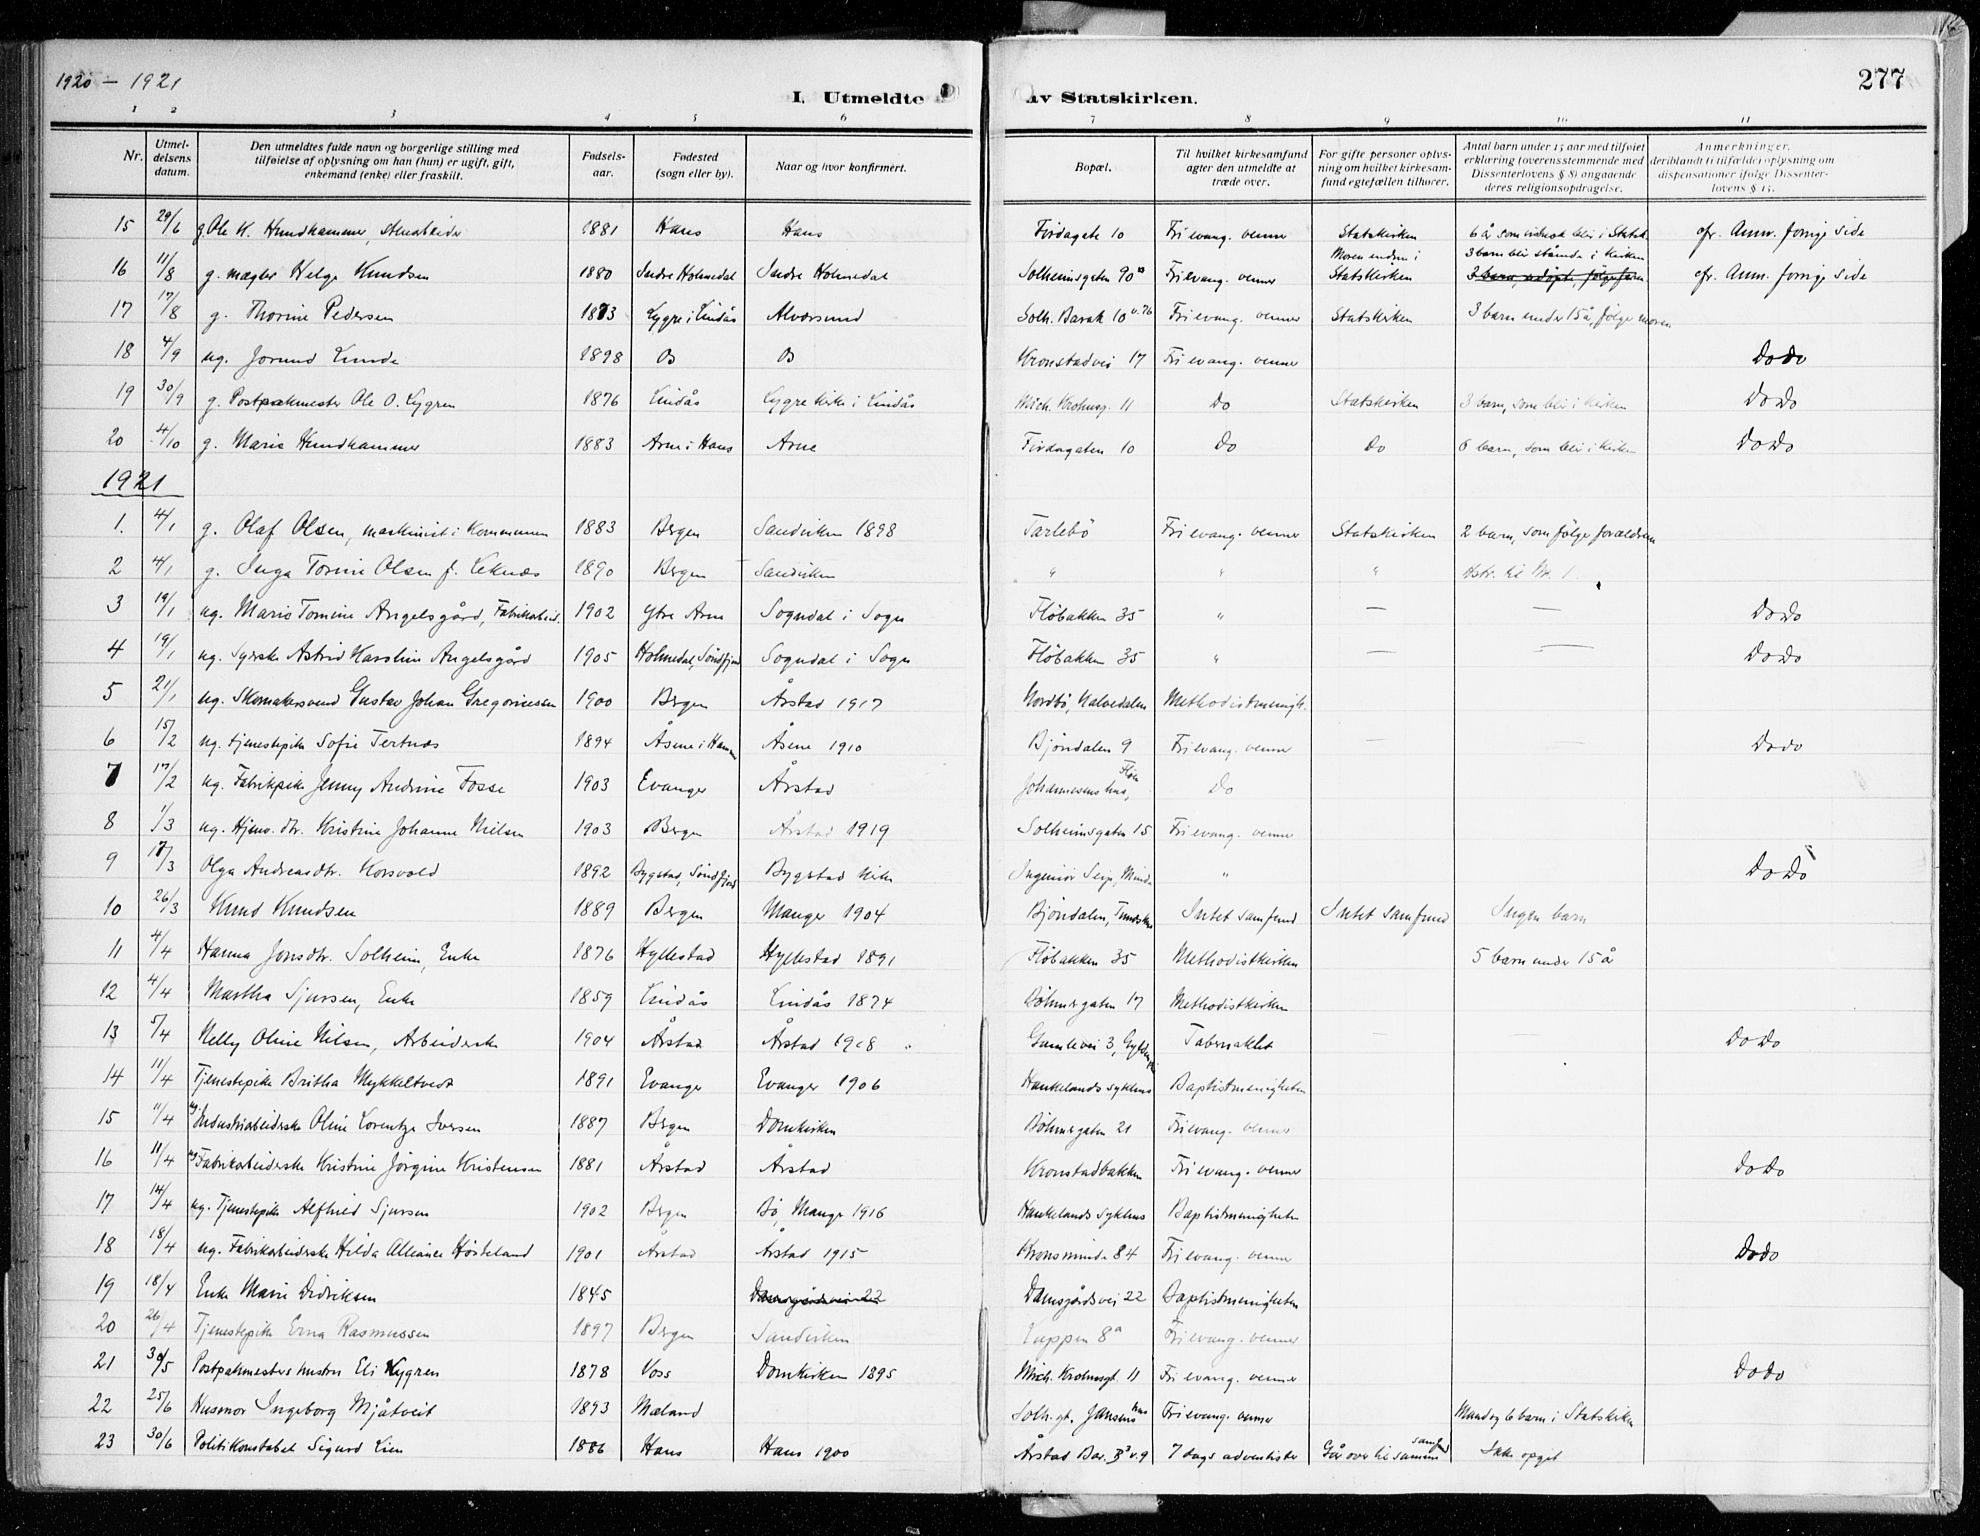 1920 – 1921
I. Utmeldte av Statskirken.
277
1 2 3 4 5 6 7 8 9 10 11
Nr. | Utmel-delsens datum. | Den utmeldtes fulde navn og borgerlige stilling med tilføielse af oplysning om han (hun) er ugift, gift, enkemand (enke) eller fraskilt. | Fødsels-aar. | Fødested (sogn eller by). | Naar og hvor konfirmert. | Bopæl. | Til hvilket kirkesamfund agter den utmeldte at træde over. | For gifte personer oplys-ning om hvilket kirkesam-fund egtefællen tilhører. | Antal barn under 15 aar med tilføiet erklæring (overensstemmende med Dissenterlovens § 8) angaaende deres religionsopdragelse. | Anmerkninger, deriblandt (i tilfælde) oplysning om dispensationer ifølge Dissenter-lovens § 15.
15 29/6 g. Ole K. Hundhammer, 1881 Haus Haus Firdagate 10 Fri evang. venner Statskirken cfr. Anm. forrige side
16 11/8 g. mægler Helge Knudsen 1880 Indre Holmedal Indre Holmedal Solheimsgaten 90 Fri evang. venner Statskirken 3 barn blir stående i Kirken cfr. Anm. forrige side
17 17/8 g. Thorine Pedersen 1873 Lygre i Lindås Alversund Solh. Barak 10 v. 76 Fri evang. venner Statskirken 3 barn under 15 år, følge moren
18 4/9 ug. Jorund Lunde 1898 Os Os Kronstadvei 17 Fri evang. venner Do Do
19 30/9 g. Postpakmester Ole O. Lygren 1876 Lindås Lygre kirke i Lindås Mich. Krohnsg. 11 Do Statskirken 3 barn, som blir i Kirken Do Do
20 4/10 g. Marie Hundhammer 1883 Arne i Haus Arne Firdagaten 10 Do Do 6 barn, som blir i kirken Do Do
1921
1. 4/1 g. Olaf Olsen, maskinist i Kommunen 1883 Bergen Sandviken 1898 Tarlebö Fri evang. venner Statskirken 2 barn, som følge forældrene
2 4/1 g. Inga Torine Olsen f. Leknes 1890 Bergen Sandviken " " " til Nr. 1
3 19/1 ug. Marie Tomine Angelsgård, Fabrikarbeid. 1902 Ytre Arne Sogndal i Sogn Fløbakken 35 " — — Do Do
4 19/1 ug. Syerske Astrid Karoline Angelsgård 1905 Holmedal, Söndfjord Sogndal i Sogn Fløbakken 35 " — — Do Do
5 21/1 ug. Skomakersvend Gustav Johan Gregoriussen 1900 Bergen Årstad 1917 Nordbö, Kalvedalen Methodistmenigh.
6 15/2 ug. tjenestepike Sofie Tertnæs 1894 Åsene i Hamre Åsene 1910 Bjöndalen 9 Fri evang. venner — — Do do
7 17/2 ug. Fabrikpike Jenny Andrine Fosse 1903 Evanger Årstad Johannesens hus, Fløen Do
8 1/3 ug. Hjemv. dtr. Kristine Johanne Nielsen 1903 Bergen Årstad 1919 Solheimsgaten 15 Fri evang. venner
9 17/3 Olga Andreasdtr. Korsvold 1892 Bygstad, Söndfjord Bygstad kirke Ingeniör Seip, Minde " Do Do
10 26/3 Knud Knudsen 1889 Bergen Manger 1904 Bjöndalen, Intet samfund Intet samfund Ingen barn
11 4/4 Hanna Jonsdtr. Solheim, Enke 1876 Hyllestad Hyllestad 1891 Fløbakken 35 Methodistkirken 5 barn under 15 år
12 4/4 Martha Sjursen, Enke 1859 Lindås Lindås 1874 Böhmergaten 17 Methodistkirken
13 5/4 Nelly Oline Nilsen, Arbeiderske 1904 Årstad Årstad 1918 Gamlevei 3, Tabernaklet — — Do Do
14 11/4 Tjenestepike Britha Mykkeltvedt 1891 Evanger Evanger 1906 Haukelands sykehus Baptistmenigheten
15 11/4 ug. Industriarbeiderske Oline Lorentze Iversen 1887 Bergen Domkirken Böhmergaten 21 Fri evang. venner
16 11/4 ug. Fabrikarbeiderske Kristine Jörgine Kristensen 1881 Årstad Årstad Kronstadbakken Fri evang. venner Do Do
17 14/4 ug. Tjenestepike Alfhild Sjursen 1902 Bergen Bö, Manger 1916 Haukelands sykehus Baptistmenigheten
18 18/4 ug. Fabrikarbeiderske Hilda Alliance Hösteland 1901 Årstad Årstad 1915 Kronsminde 84 Fri evang. venner Do do
19 18/4 Enke Marie Didriksen 1845 Damsgårdsvei 22 Damsgårdsvei 22 Baptistmenigheten
20 26/4 Tjenestepike Erna Rasmussen 1897 Bergen Sandviken Lappen 8a Fri evang. venner
21 30/5 Postpakmesters hustru Eli Lygren 1878 Voss Domkirken 1895 Mich. Krohnsgt. 11 Fri evang. venner Do Do
22 25/6 Husmor Ingeborg Mjåtveit 1893 Mæland Solh. gt. Jansens hus Fri evang. venner Mand og 6 barn i Statskirken
23 30/6 Politikonstabel Sigurd Lien 1886 Haus Haus 1900 Årstad Bar. v. 9 7 dags adventister Går over til samme samfund Ikke opgit